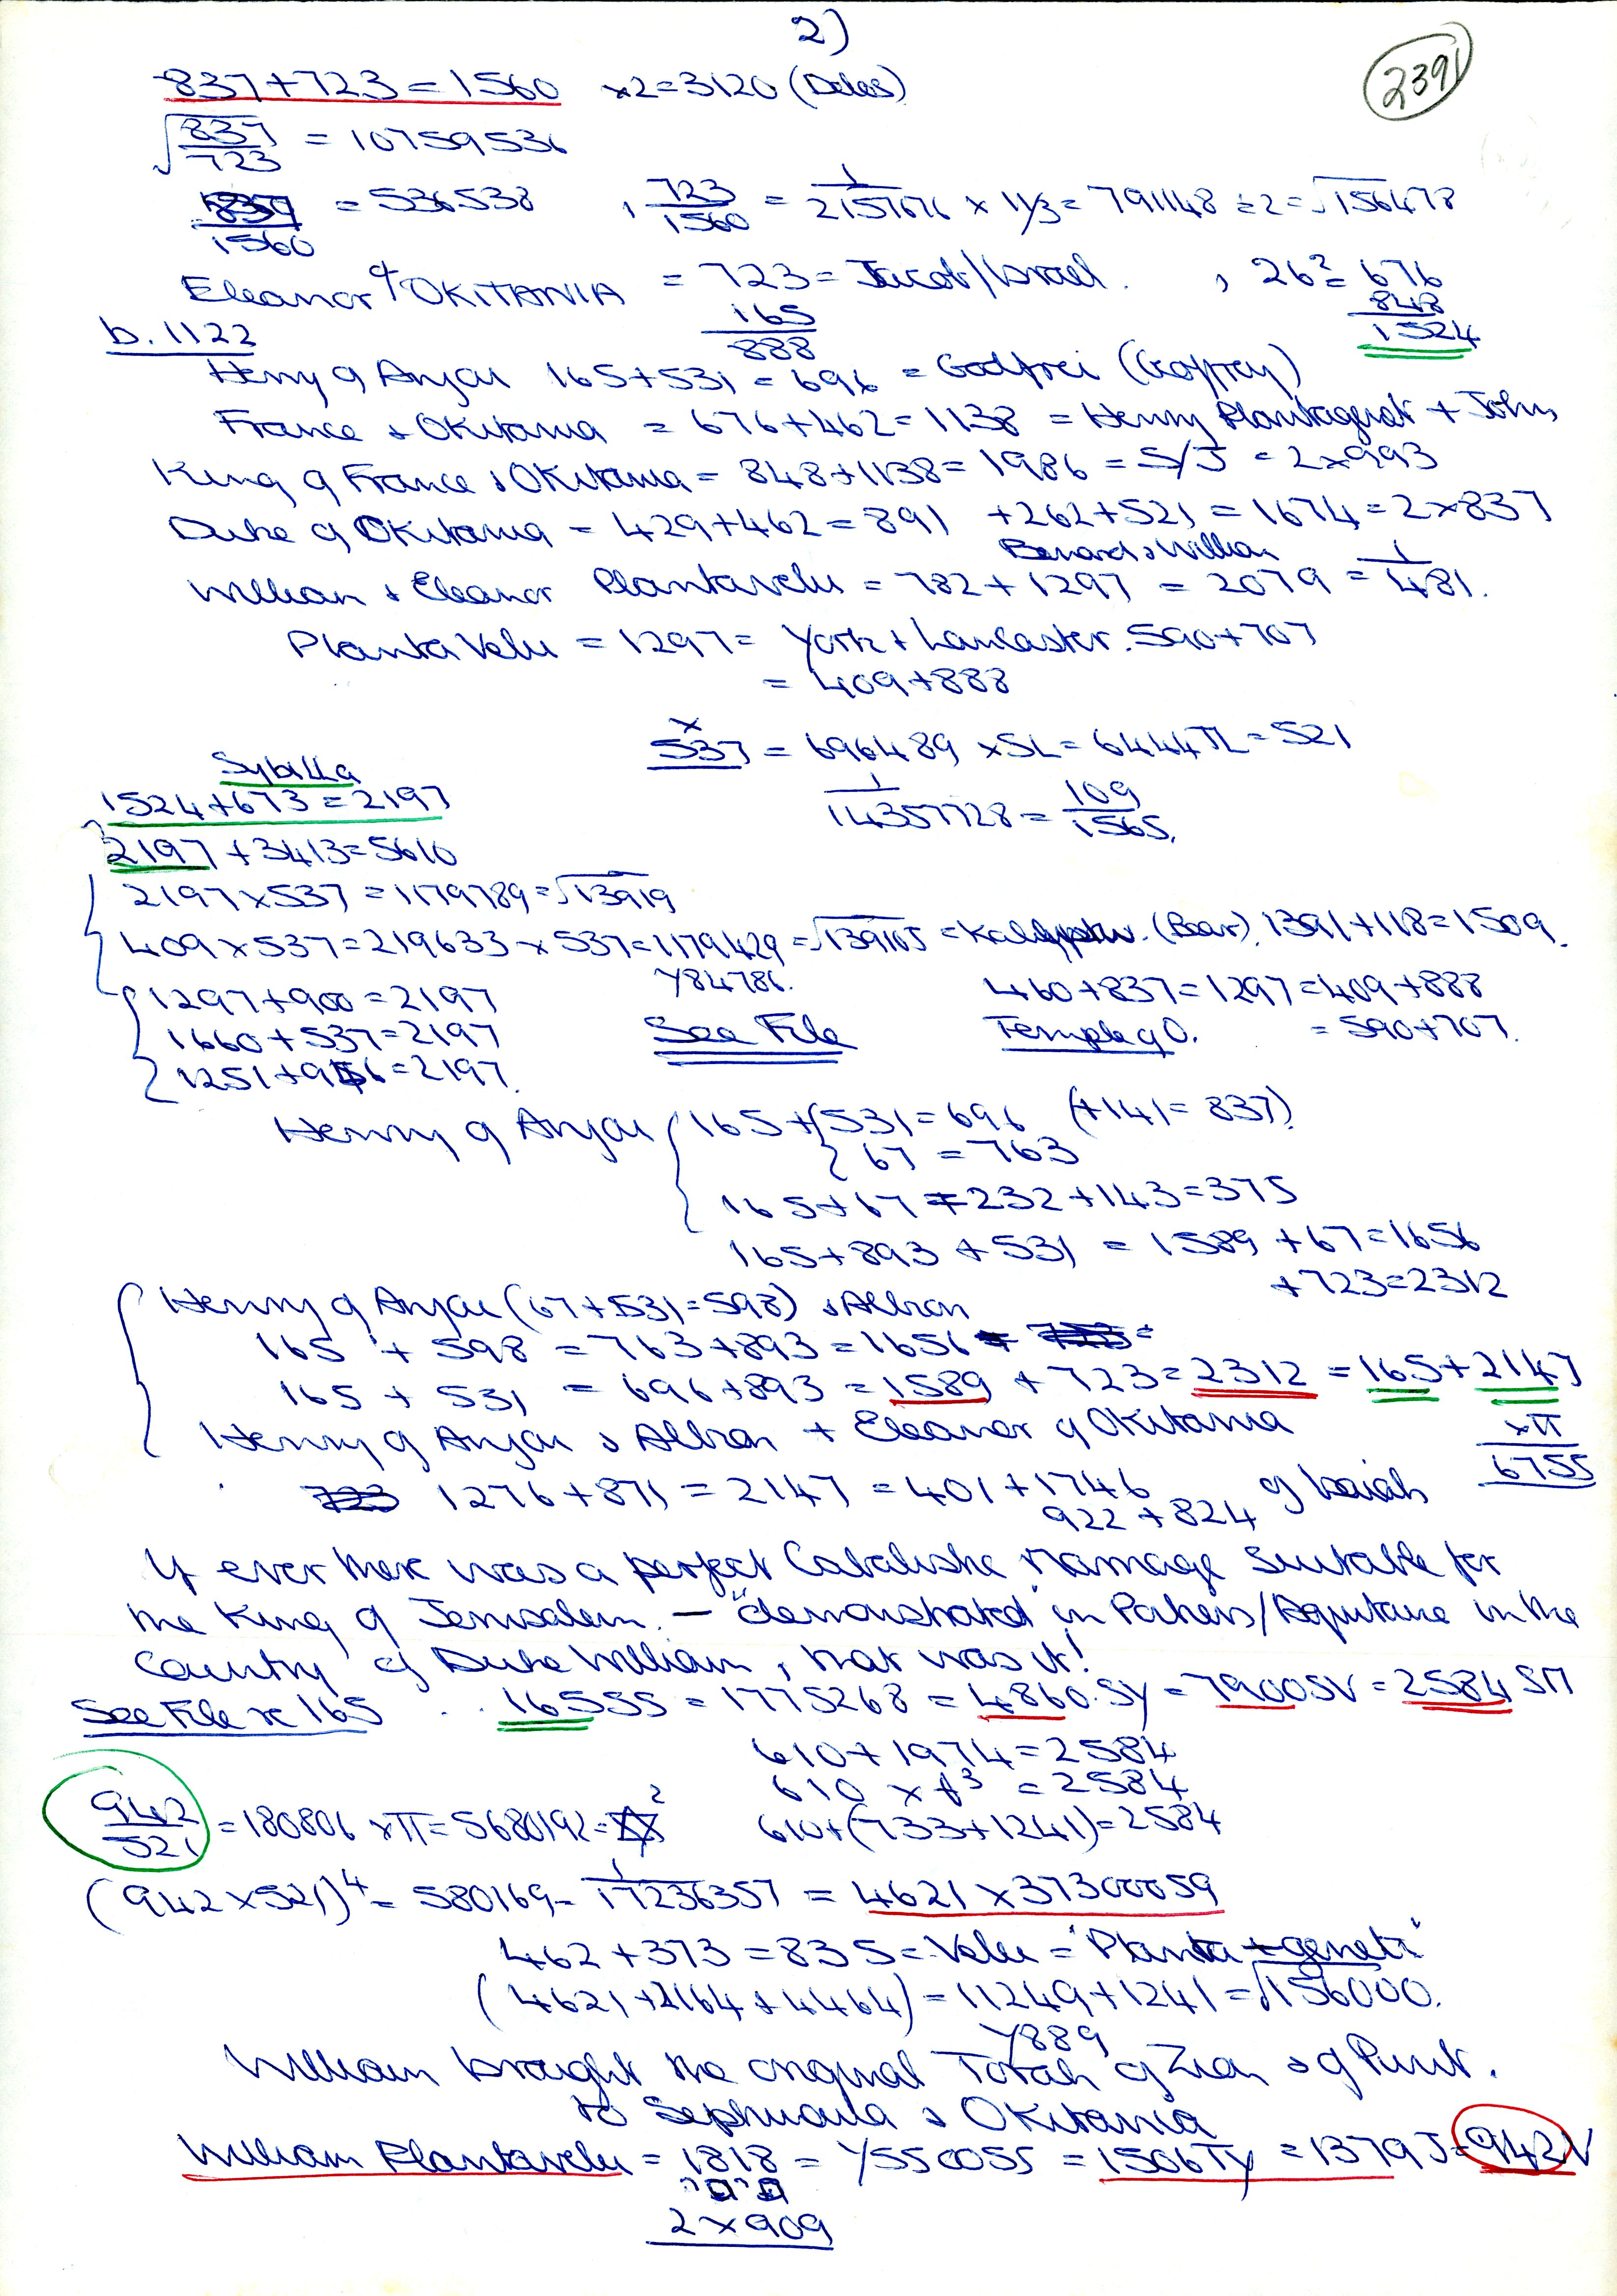 2)
2391
837+723=1560 ×2=3120 (Delos)
√837/723 = 10759536
837/1560 = 536538 , 723/1560 = 1/2157676 × 1/3 = 791148 ÷2=√156478
Eleanor of OKITANIA = 723 = Jacob/Israel. , 26²= 676
165 848
b. 1122 888 1524
Henry of Anjou 165+531=696 = Godfrei (Goffrey)
France & OKitania = 676+462=1138 = Henry Plantagenet + John
King of France & OKitania = 848+1138=1986 = S/J = 2×993
Duke of OKitania = 429+462=891 +262+521=1674=2×837
Benard & William
William & Eleanor Plantavelu = 782+1297 = 2079 = 1/481.
Planta Velu = 1297 = York + Lancaster. 590+707
= 409+888
×
537 = 696489 ×SL=6444TL=521
1/14357728 = 109/1565.
Sybilla
1524+673=2197
2197+3413=5610
2197×537=1179789=√13919
409×537=219633×537=1179429=√139165 = (Bear). 1391+118=1509.
Y84786.
1297+900=2197 460+837=1297=409+888
1660+537=2197 See File Temple of O. =590+707.
1251+946=2197.
Henry of Anjou 165+531=696 (+141=837).
67 = 763
165+67=232+143=375
165+893+531 = 1589+67=1656
+723=2312
Henry of Anjou (67+531=598) & Albion
165 + 598 = 763+893=1656
165 + 531 = 696+893=1589+723=2312=165+2147
Henry of Anjou & Albion + Eleanor of OKitania ×π
6755
1276+871=2147=401+1746 of Isaiah
922+824
If ever there was a perfect Cabalistic Marriage suitable for
the King of Jerusalem. — "demonstrated" in Poitiers/Aquitaine in the
Country of Duke William, that was it!
See File re 165 16555=1775268=4860.SY=7900SV=2584 SΠ
610+1974=2584
610 ×f³ =2584
942/521 =180806 ×π=5680192=✡² 610+(733+1241)=2584
(942×521)⁴=580169=1/17236357 = 4621×37300059
462+373=835=Velu="Planta+geneti"
(4621+2164+4464)=11249+1241=√156000.
Y889
William brought the original Torah of Zion & of Punt.
to Sephuania & OKitania
William Plantavelu = 1818 = Y550055=1506TY=1379J=942V
2×909